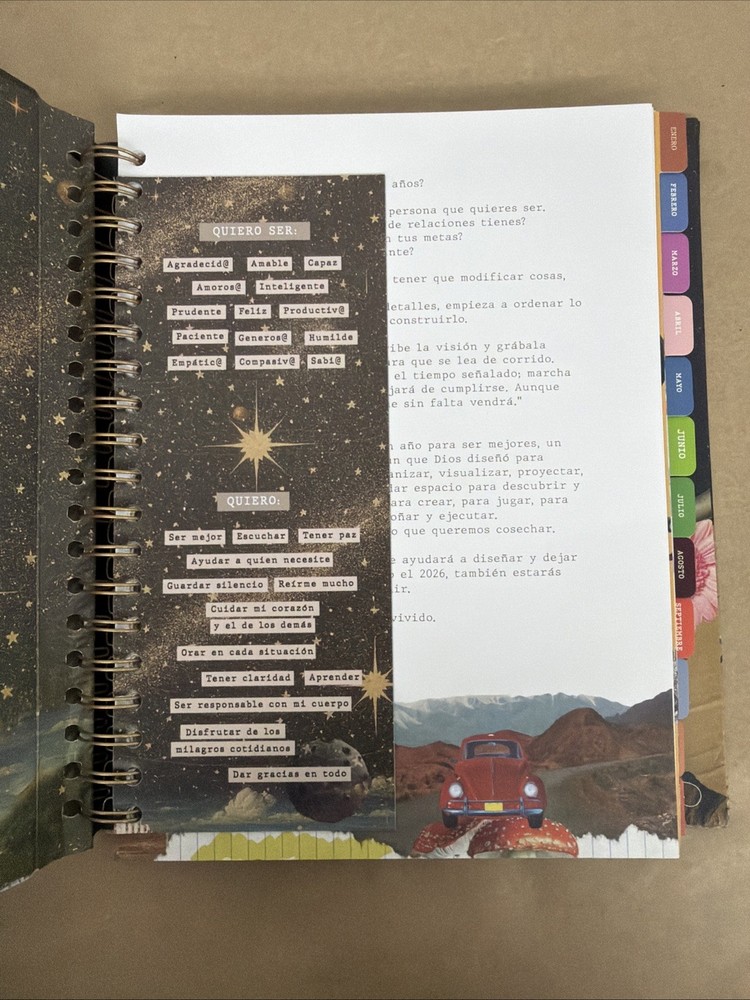 QUIERO SER:
Agradecid@ Amable Capaz
Amoros@ Inteligente
Prudente Feliz Productiv@
Paciente Generos@ Humilde
Empátic@ Compasiv@ Sabi@
QUIERO:
Ser mejor Escuchar Tener paz
Ayudar a quien necesite
Guardar silencio Reírme mucho
Cuidar mi corazón
y el de los demás
Orar en cada situación
Tener claridad Aprender
Ser responsable con mi cuerpo
Disfrutar de los
milagros cotidianos
Dar gracias en todo
años?
persona que quieres ser.
de relaciones tienes?
tus metas?
tener que modificar cosas,
detalles, empieza a ordenar lo
construirlo.
la visión y grábala
que se lea de corrido.
el tiempo señalado; marcha
de cumplirse. Aunque
sin falta vendrá."
año para ser mejores, un
que Dios diseñó para
visualizar, proyectar,
espacio para descubrir y
para crear, para jugar, para
y ejecutar.
que queremos cosechar.
ayudará a diseñar y dejar
el 2026, también estarás
vivido.
ENERO
FEBRERO
MARZO
ABRIL
MAYO
JUNIO
JULIO
AGOSTO
SEPTIEMBRE